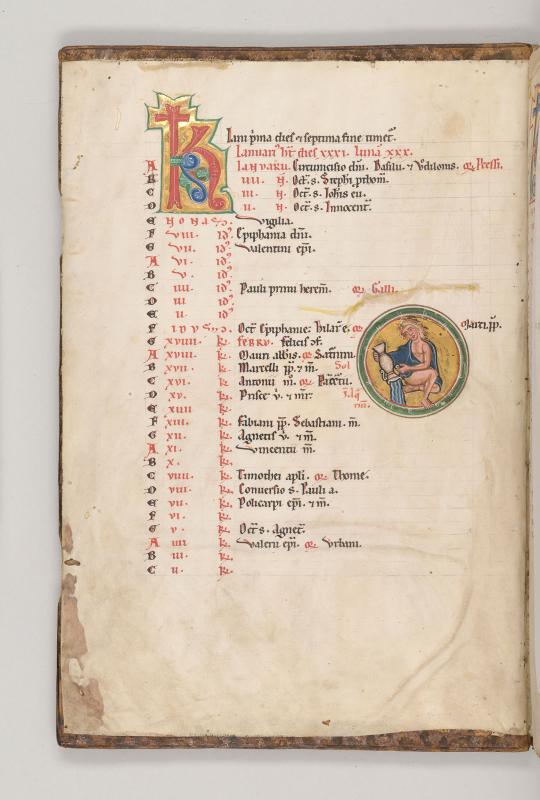 K
Iani p̄ma dies ⁊ septima fine timet᷑.
Ianuari' ht̄ dies xxxi. luna xxx.
A Ianuarii. Circumcisio dn̄i. Basilii. ⁊ Odilonis.
B iiii. N̄. Oct̄. s. Steph̄i p̄thom̄.
C iii. N̄. Oct̄. s. Ioh̄is eu.
D ii. N̄. Oct̄. s. Innocent̄.
E Nonas. Vigilia.
F viii. id' Epiphania dn̄i.
G vii. id' Valentini ep̄i.
A vi. id'
B v. id'
C iiii id'
D iii id' Pauli primi herem̄. Galli.
E ii id'
F Idus. Oct̄ Epiphanie: hilar̄ e. Marti pp̄.
G xviiii. k̄. febru. felicis
A xviii. k̄. Mauri abb̄is. Sol
B xvii. k̄. Marcelli pp̄. ⁊ m̄.
C xvi. k̄. Antonii m̄.
D xv. k̄. Prisce v̄. ⁊ mr̄.
E xiiii k̄.
F xiii. k̄. Fabiani pp̄. Sebastiani. m̄.
G xii. k̄. Agnetis v̄. ⁊ m̄.
A xi. k̄. Vincentii m̄.
B x. k̄.
C viiii. k̄. Timothei apl̄i. Thome.
D viii. k̄. Conversio s̄. Pauli a.
E vii. k̄. Policarpi ep̄i. ⁊ m̄.
F vi. k̄.
G v. k̄. Oct̄ s. Agnet̄.
A iiii k̄. Valerii ep̄i. Urbani.
B iii. k̄.
C ii. k̄.